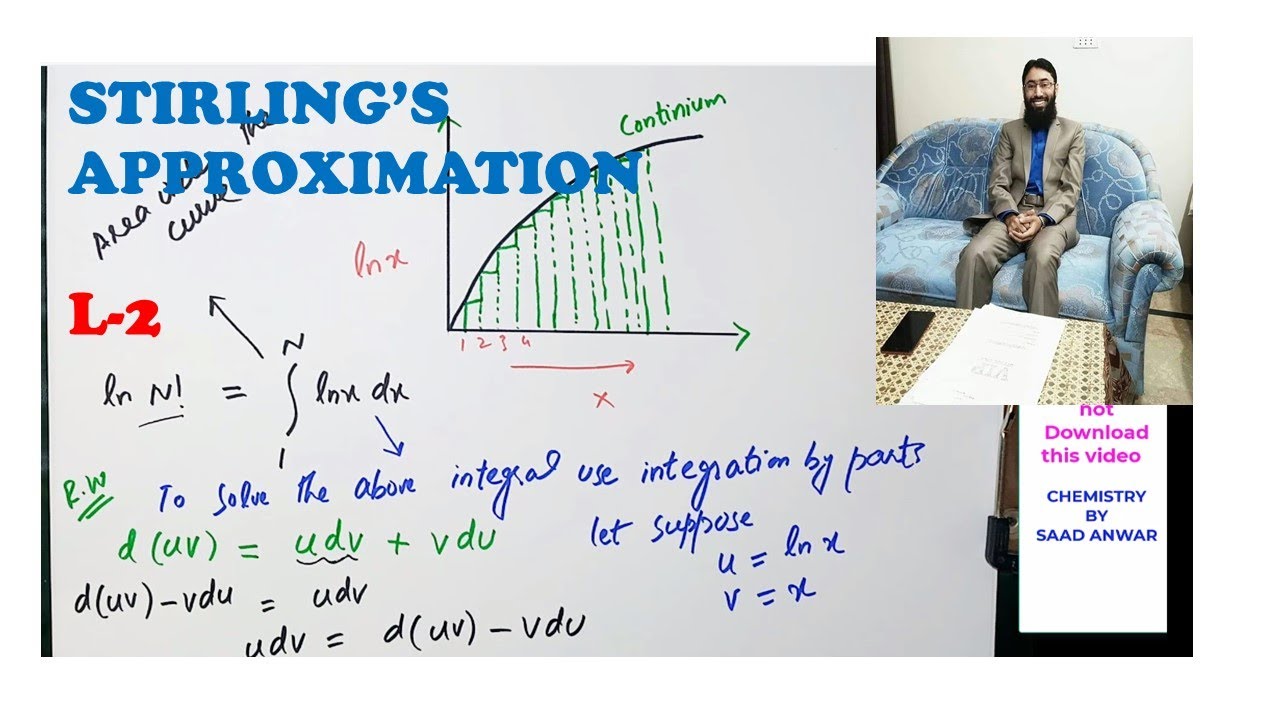 STIRLING'S
APPROXIMATION
Area under the
curve
Continium
lnx
L-2
1 2 3 4
x
ln N! = ∫ lnx dx
N
1
R.W
To solve the above integral use integration by parts
d(uv) = udv + vdu
let suppose
u = ln x
v = x
d(uv) - vdu = udv
udv = d(uv) - vdu
not
Download
this video
CHEMISTRY
BY
SAAD ANWAR